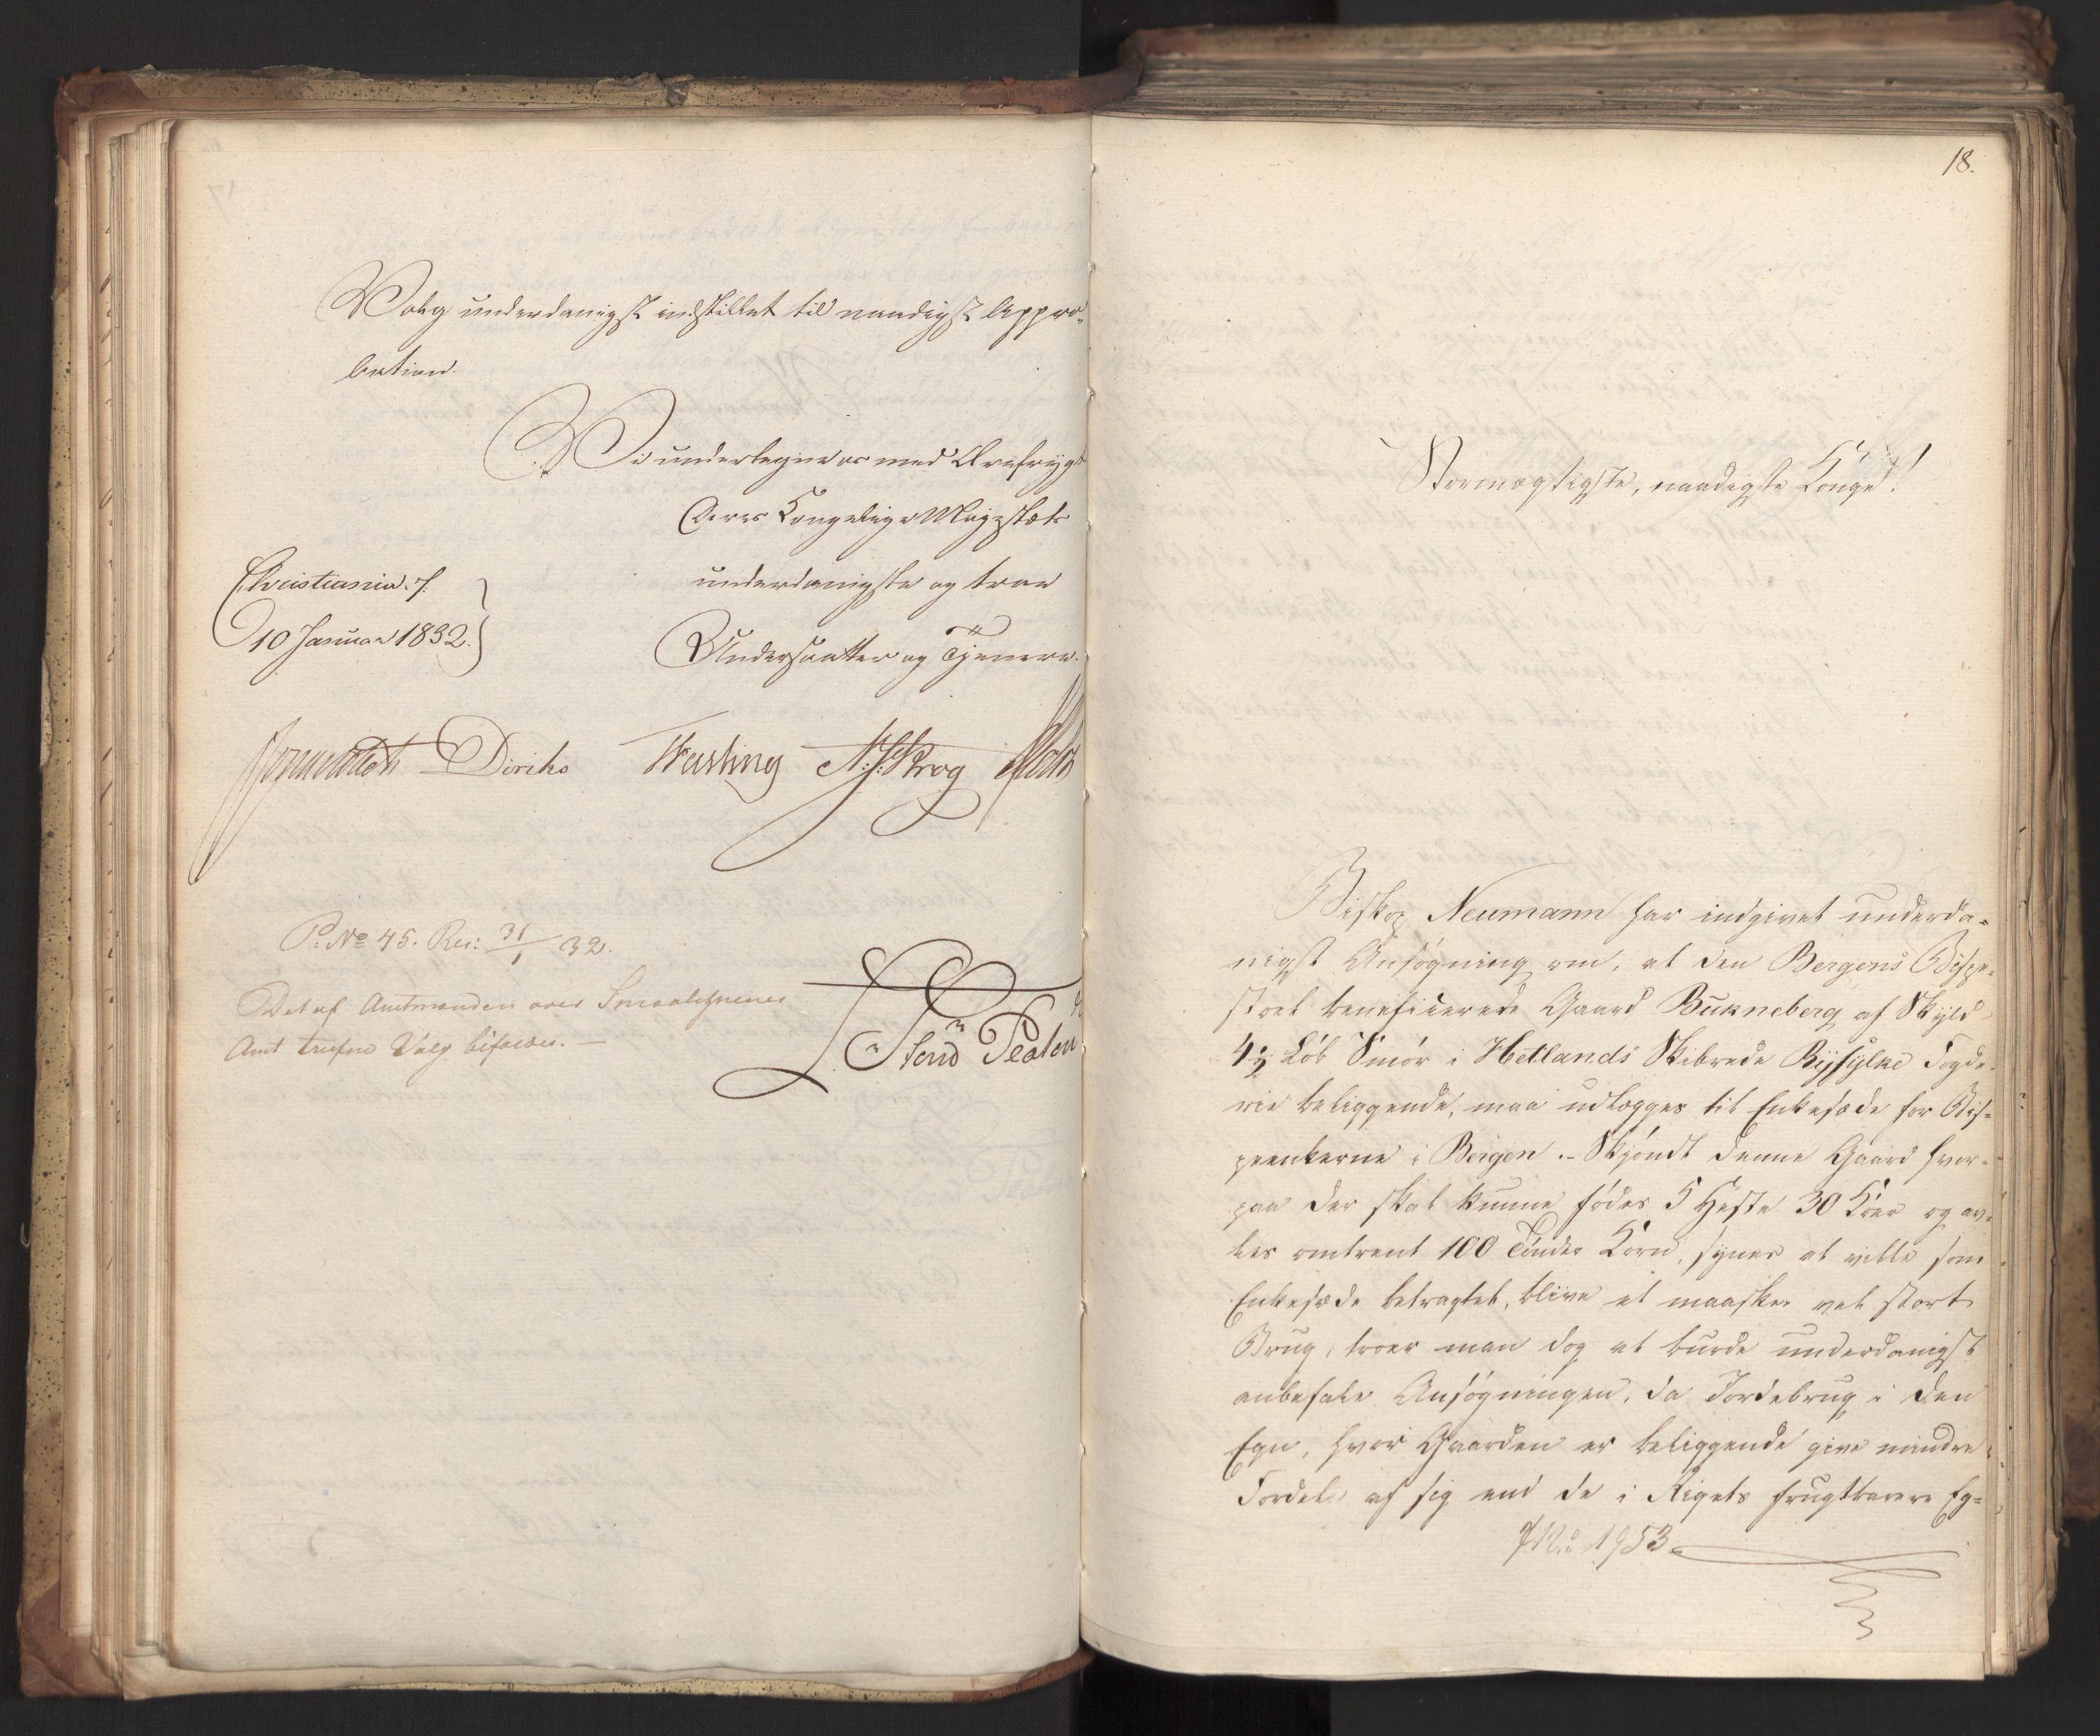 Valg underdanigst indstillet til naadigst Appro-
bation.
Vi undertegne os med Ærefrygt
Deres Kongelige Majestæts
underdanigste og troe
Undersaatter og Tjenere.
Christiania d.
10 Januar 1832.
Diriks Fasting Krog
P. No 45. Res: 31/1 32.
Det af Amtmanden over Smaalehnenes
Amt trufne Valg bifaldes. —
18.
Stormægtigste, naadigste Konge!
Biskop Neumann har indgivet underda-
nigst Ansøgning om, at den Bergens Bispe-
stoel beneficerede Gaard Bukneberg af Skyld
4½ Løb Smør i Hetlands Skibrede Ryfylke Fogde-
rie beliggende, maa udlægges til Enkesæde for Bis-
peenkerne i Bergen. - Skjøndt denne Gaard hvor-
paa der skal kunne fødes 5 Heste 30 Køer og av-
les omtrent 100 Tønder Korn, synes at ville som
Enkesæde betragtet, blive et maaskee vel stort
Brug, troer man dog at burde underdanigst
anbefale Ansøgningen, da Jordebrug i den
Egn, hvor Gaarden er beliggende give mindre
Fordele af sig end de i Rigets frugtbarere Eg-
No 1953